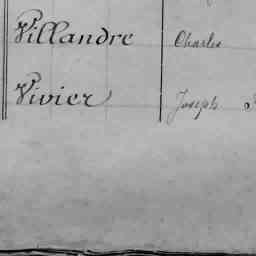 Villandre Charles
Vivier Joseph